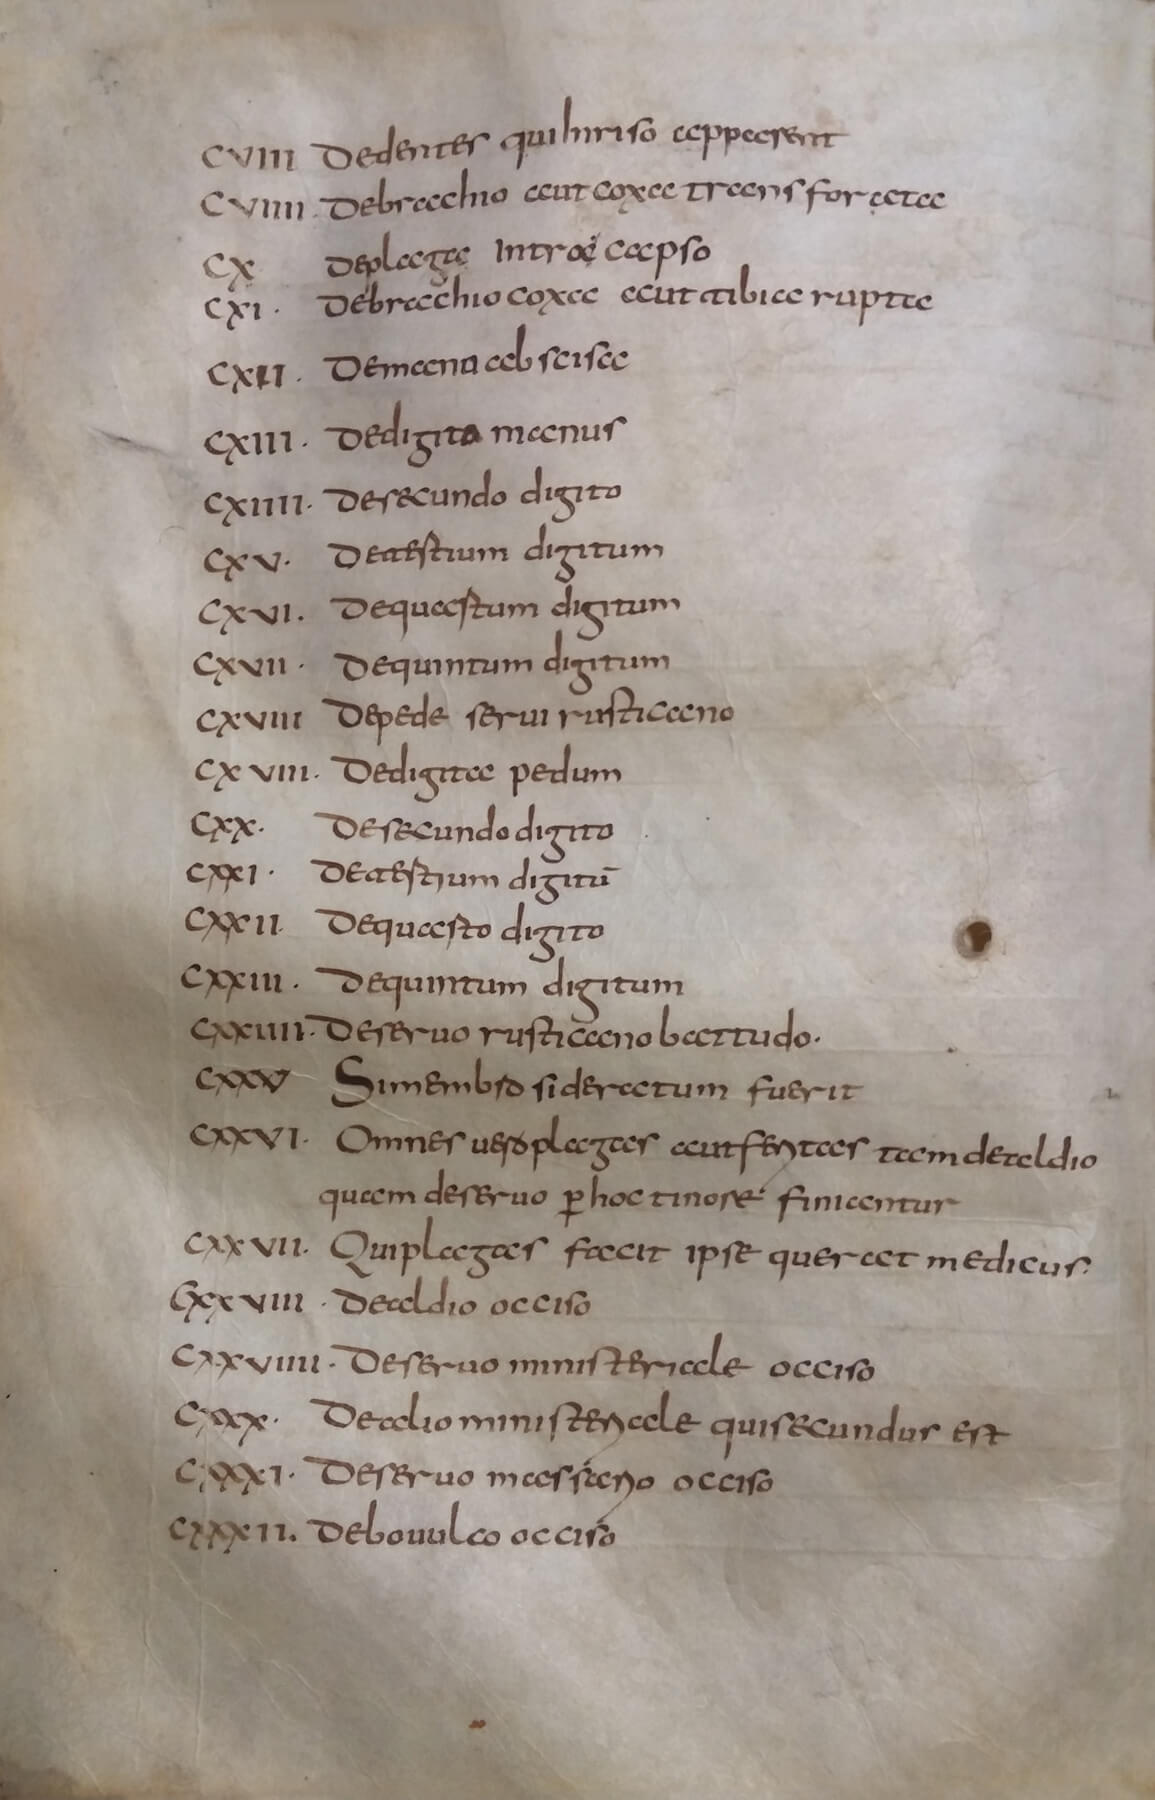 CVIII Dedentes qui Inriso apparent
CVIIII. Debrachio aut coxa transforata
CX Deplaga Intro Capso
CXI. Debrachio coxa aut tibia rupta
CXII. Demano abscisa
CXIII. Dedigito manus
CXIIII. Desecundo digito
CXV. Detertium digitum
CXVI. Dequartum digitum
CXVII. Dequintum digitum
CXVIII Depede serui rusticano
CXVIII. Dedigita pedum
CXX. Desecundo digito
CXXI. Detertium digitū
CXXII Dequarto digito
CXXIII. Dequintum digitum
CXXIIII. Deseruo rusticano battudo.
CXXV Simembro sideratum fuerit
CXXVI. Omnes uero plagas aut feritas tam de aldio
quam deseruo p hoc tinore finiantur
CXXVII. Quiplagas fecit ipse querat medicus.
CXXVIII. Dealdio occiso
CXXVIIII. Deseruo ministeriale occiso
CXXX. Dealio ministeriale quisecundus est
CXXXI. Deseruo massario occiso
CXXXII. Debouulco occiso